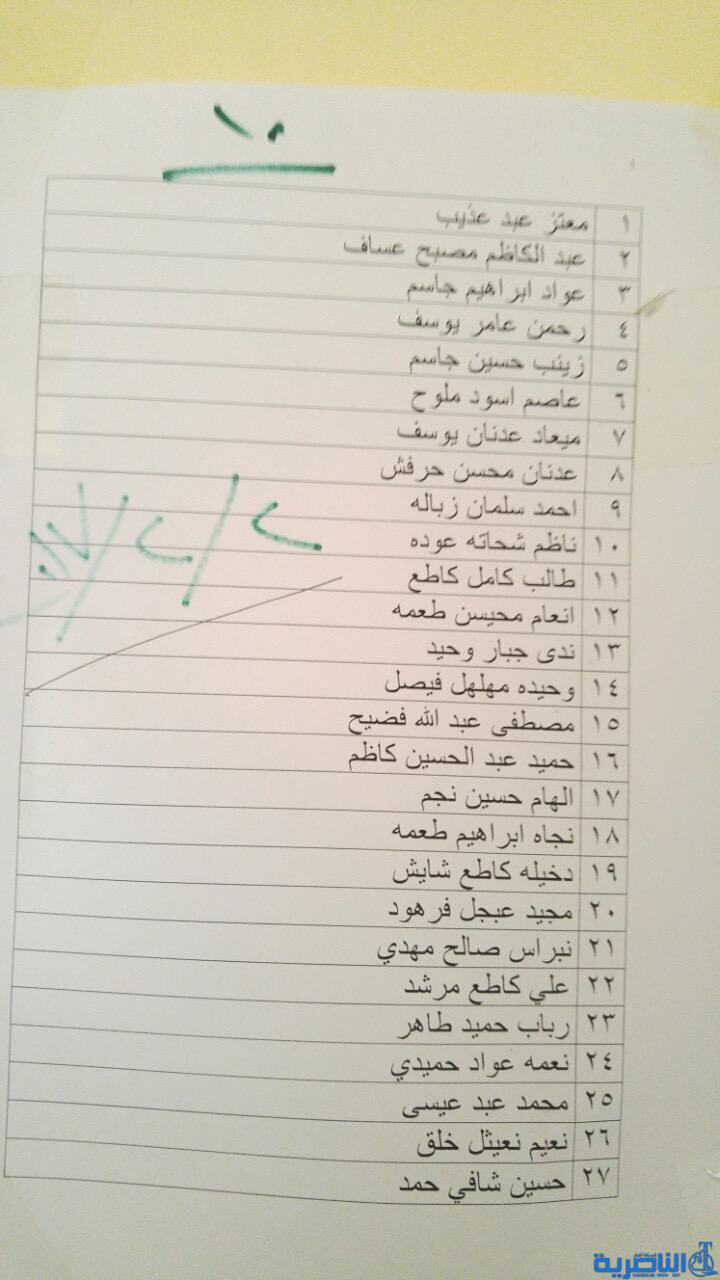 ١٠
١ معتز عبد عذيب
٢ عبد الكاظم مصبح عساف
٣ عواد ابراهيم جاسم
٤ رحمن عامر يوسف
٥ زينب حسين جاسم
٦ عاصم اسود ملوح
٧ ميعاد عدنان يوسف
٨ عدنان محسن حرفش
٩ احمد سلمان زباله
١٠ ناظم شحاته عوده
١١ طالب كامل كاطع
١٢ انعام محيسن طعمه
١٣ ندى جبار وحيد
١٤ وحيده مهلهل فيصل
١٥ مصطفى عبد الله فضيح
١٦ حميد عبد الحسين كاظم
١٧ الهام حسين نجم
١٨ نجاه ابراهيم طعمه
١٩ دخيله كاطع شايش
٢٠ مجيد عبجل فرهود
٢١ نبراس صالح مهدي
٢٢ علي كاطع مرشد
٢٣ رباب حميد طاهر
٢٤ نعمه عواد حميدي
٢٥ محمد عبد عيسى
٢٦ نعيم نعيثل خلق
٢٧ حسين شافي حمد
الناصرية